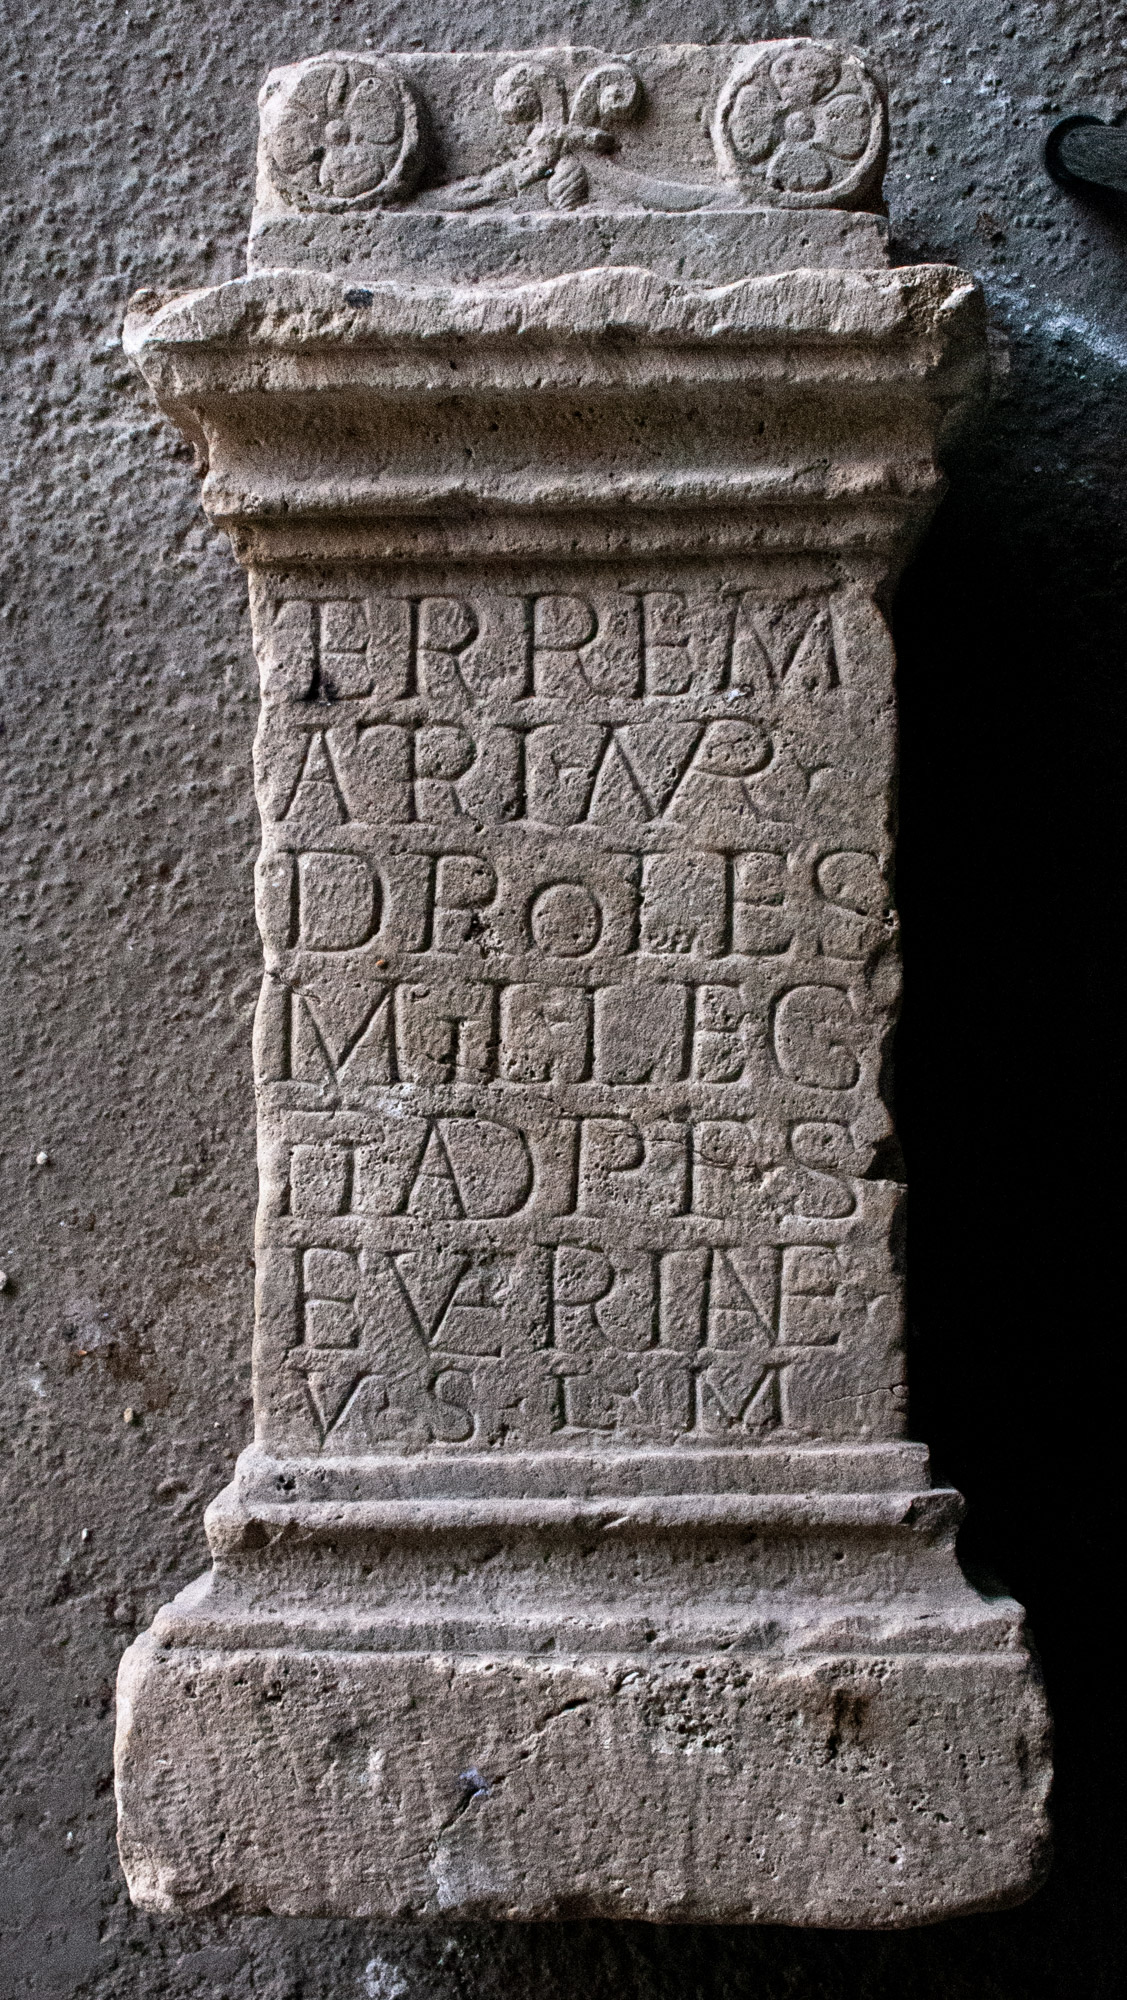 TERREM
ATRI AVR
DPOLES
MIL LEG
II AD P F S
EVERIANE
V S L M